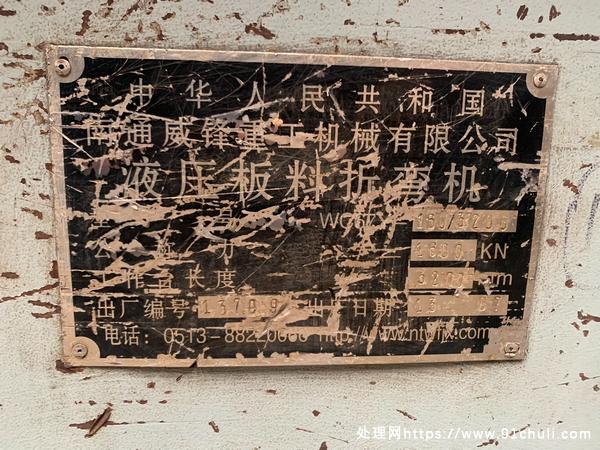 中华人民共和国
南通威锋重工机械有限公司
液压板料折弯机
型号 WC67Y-160/3200
公称力 1600 KN
工作台长度 3200 mm
出厂编号 出厂日期 13
电话: 0513-88220 http://www.ntwfjx.com
处理网https://www.91chuli.com